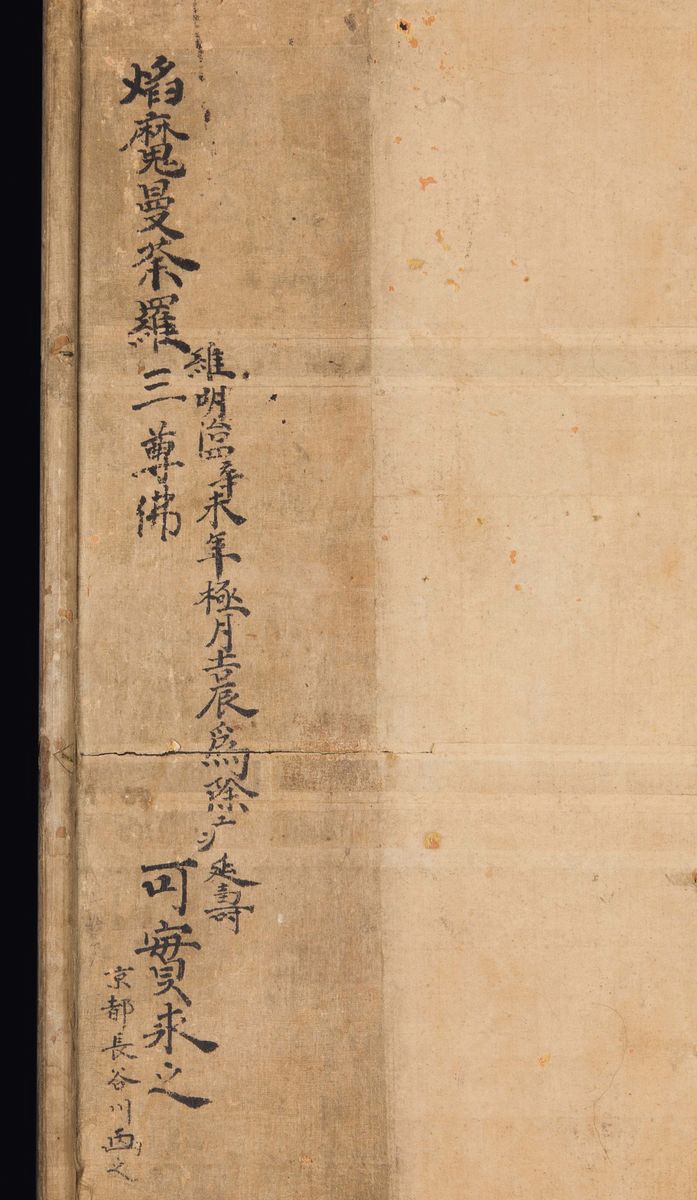 維明治四辛未年極月吉辰爲除疒延壽
焰魔曼荼羅三尊佛 可實求之
京都長谷川画之